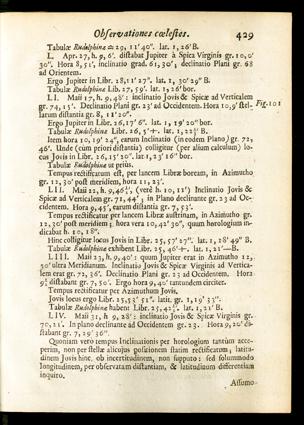 Observationes cœlestes. 429
Tabulæ Rudolphinæ ♎ 29, 11'40". lat. 1, 26'B.
L. Apr. 27, h. 9, 6'. distabat Jupiter à Spica Virginis gr. 10, 0'
30". Hora 8, 51', inclinatio grad. 61, 30', declinatio Plani gr. 68
ad Orientem.
Ergo Jupiter in Libr. 28, 11'27". lat. 1, 30'29" B.
Tabulæ Rudolphinæ Lib. 27, 59'. lat. 1, 26' bor.
LI. Maii 17, h. 9, 48': inclinatio Jovis & Spicæ ad Verticalem
gr. 74, 15'. Declinatio Plani gr. 23' ad Occidentem. Hora 10, 9' stel-
larum distantia gr. 8, 11'20".
Fig. 101
Ergo Jupiter in Libr. 26, 17'6". lat. 1, 19'20" bor.
Tabulæ Rudolphinæ Libr. 26, 5'+. lat. 1, 22½' B.
Item hora 10, 19'24", earum Inclinatio (in eodem Plano) gr. 72,
46'. Unde (cum priori distantia) colligitur (per alium calculum) lo-
cus Jovis in Libr. 26, 15'20". lat. 1, 23'16" bor.
Tabulæ Rudolphinæ ut prius.
Tempus rectificatum est, per lancem Libræ boream, in Azimutho
gr. 12, 30' post meridiem, hora 11, 23'.
LII. Maii 22, h. 9, 46½', (verè h. 10, 11') Inclinatio Jovis &
Spicæ ad Verticalem gr. 71, 44'; in Plano declinante gr. 23 ad Oc-
cidentem. Hora 9, 45', earum distantia gr. 7, 53'.
Tempus rectificatur per lancem Libræ austrinam, in Azimutho gr.
12, 30' post meridiem; hora vero 10, 42' 30", quum horologium in-
dicabat h. 10, 18".
Hinc colligitur locus Jovis in Libr. 25, 57'27". lat. 1, 28'49" B.
Tabulæ Rudolphinæ exhibent Libr. 25, 46'+. lat. 1, 21'—B.
LIII. Maii 23, h. 9, 40': quum Jupiter erat in Azimutho 12,
30' ultra Meridianum. Inclinatio Jovis & Spicæ Virginis ad Vertica-
lem erat gr. 72, 36'. Declinatio Plani gr. 23 ad Occidentem. Hora
distantia gr. 7, 50'. Ergo hora 9, 40' tantundem circiter.
Tempus rectificatur per Azimuthum Jovis.
Jovis locus ergo Libr. 25, 53' 51". latit. gr. 1, 19' 33".
Tabulæ Rudolphinæ habent Libr. 25, 42½'. lat. 1, 21' B.
LIV. Maii 31, h 9, 28': inclinatio Jovis & Spicæ Virginis gr.
70, 21'. In plano declinante ad Occidentem gr. 23. Hora 9, 20' di-
stabant gr. 7, 29'36".
Quoniam vero tempus Inclinationis per horologium tantùm acce-
perim, non per stellæ alicujus positionem statim rectificatum; latitu-
dinem Jovis hinc, ob incertitudinem, non supputo: sed solummodo
longitudinem, per observatam distantiam, & latitudinem differentiam
inquiro.
Assumo-